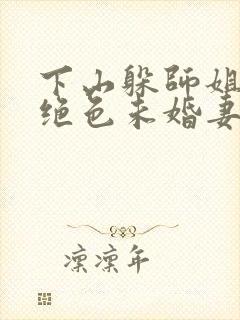 下山躲師姐
绝色未婚妻
凛凛年